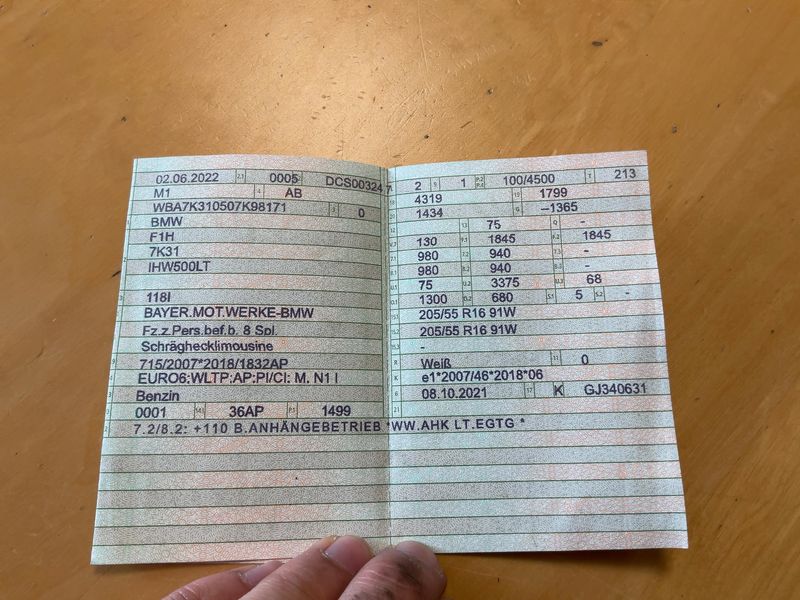 02.06.2022 2.1 0005 DCS003247
M1 4 AB
WBA7K310507K98171 3 0
BMW
F1H
7K31
IHW500LT
118I
BAYER.MOT.WERKE-BMW
Fz.z.Pers.bef.b. 8 Spl.
Schräghecklimousine
715/2007*2018/1832AP
EURO6:WLTP:AP:PI/CI: M, N1 I
Benzin
0001 36AP P.1 1499
7.2/8.2: +110 B.ANHÄNGEBETRIEB *WW.AHK LT.EGTG *
2 9 1 P.2 P.4 100/4500 T 213
4319 18 1799
1434 G –1365
13 75 Q -
130 F.1 1845 F.2 1845
980 7.2 940 7.3 -
980 8.2 940 8.3 -
75 U.2 3375 U.3 68
1300 O.2 680 S.1 5 S.2 -
205/55 R16 91W
205/55 R16 91W
-
R Weiß 11 0
K e1*2007/46*2018*06
6 08.10.2021 17 K GJ340631
21